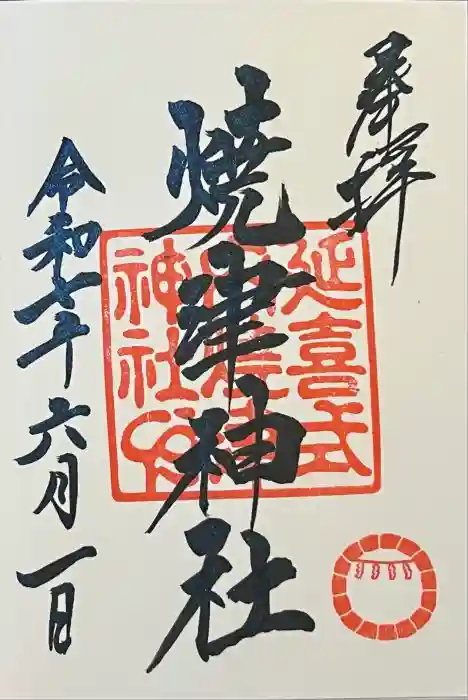 奉拝
焼津神社
延喜式
神社印
令和七年六月一日